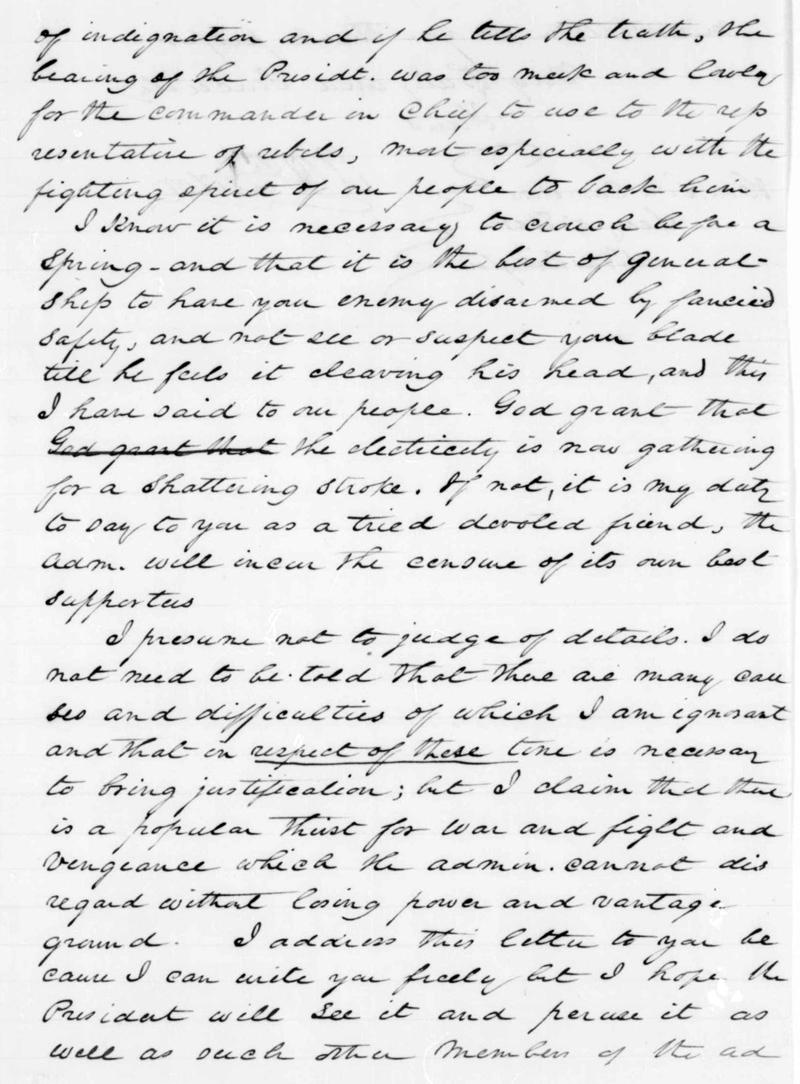 of indignation and if he tells the truth, the
bearing of the Presidt. was too meek and lowly
for the commander in Chief to use to the rep
resentative of rebels, most especially with the
fighting spirit of our people to back him
I Know it is necessary to crouch before a
Spring - and that it is the best of general-
ship to have your enemy disarmed by fancied
safety, and not see or suspect your blade
till he feels it cleaving his head, and this
I have said to our people. God grant that
God grant that the electricity is now gathering
for a shattering stroke. If not, it is my duty
to say to you as a tried devoted friend, the
adm. will incur the censure of its own best
supporters
I presume not to judge of details. I do
not need to be told that there are many cau
ses and difficulties of which I am ignorant
and that in respect of these time is necessary
to bring justification; but I claim that there
is a popular thirst for war and fight and
vengeance which the admin. cannot dis
regard without losing power and vantage
ground. I address this letter to you be
cause I can write you freely but I hope the
President will see it and peruse it as
well as such other members of the ad